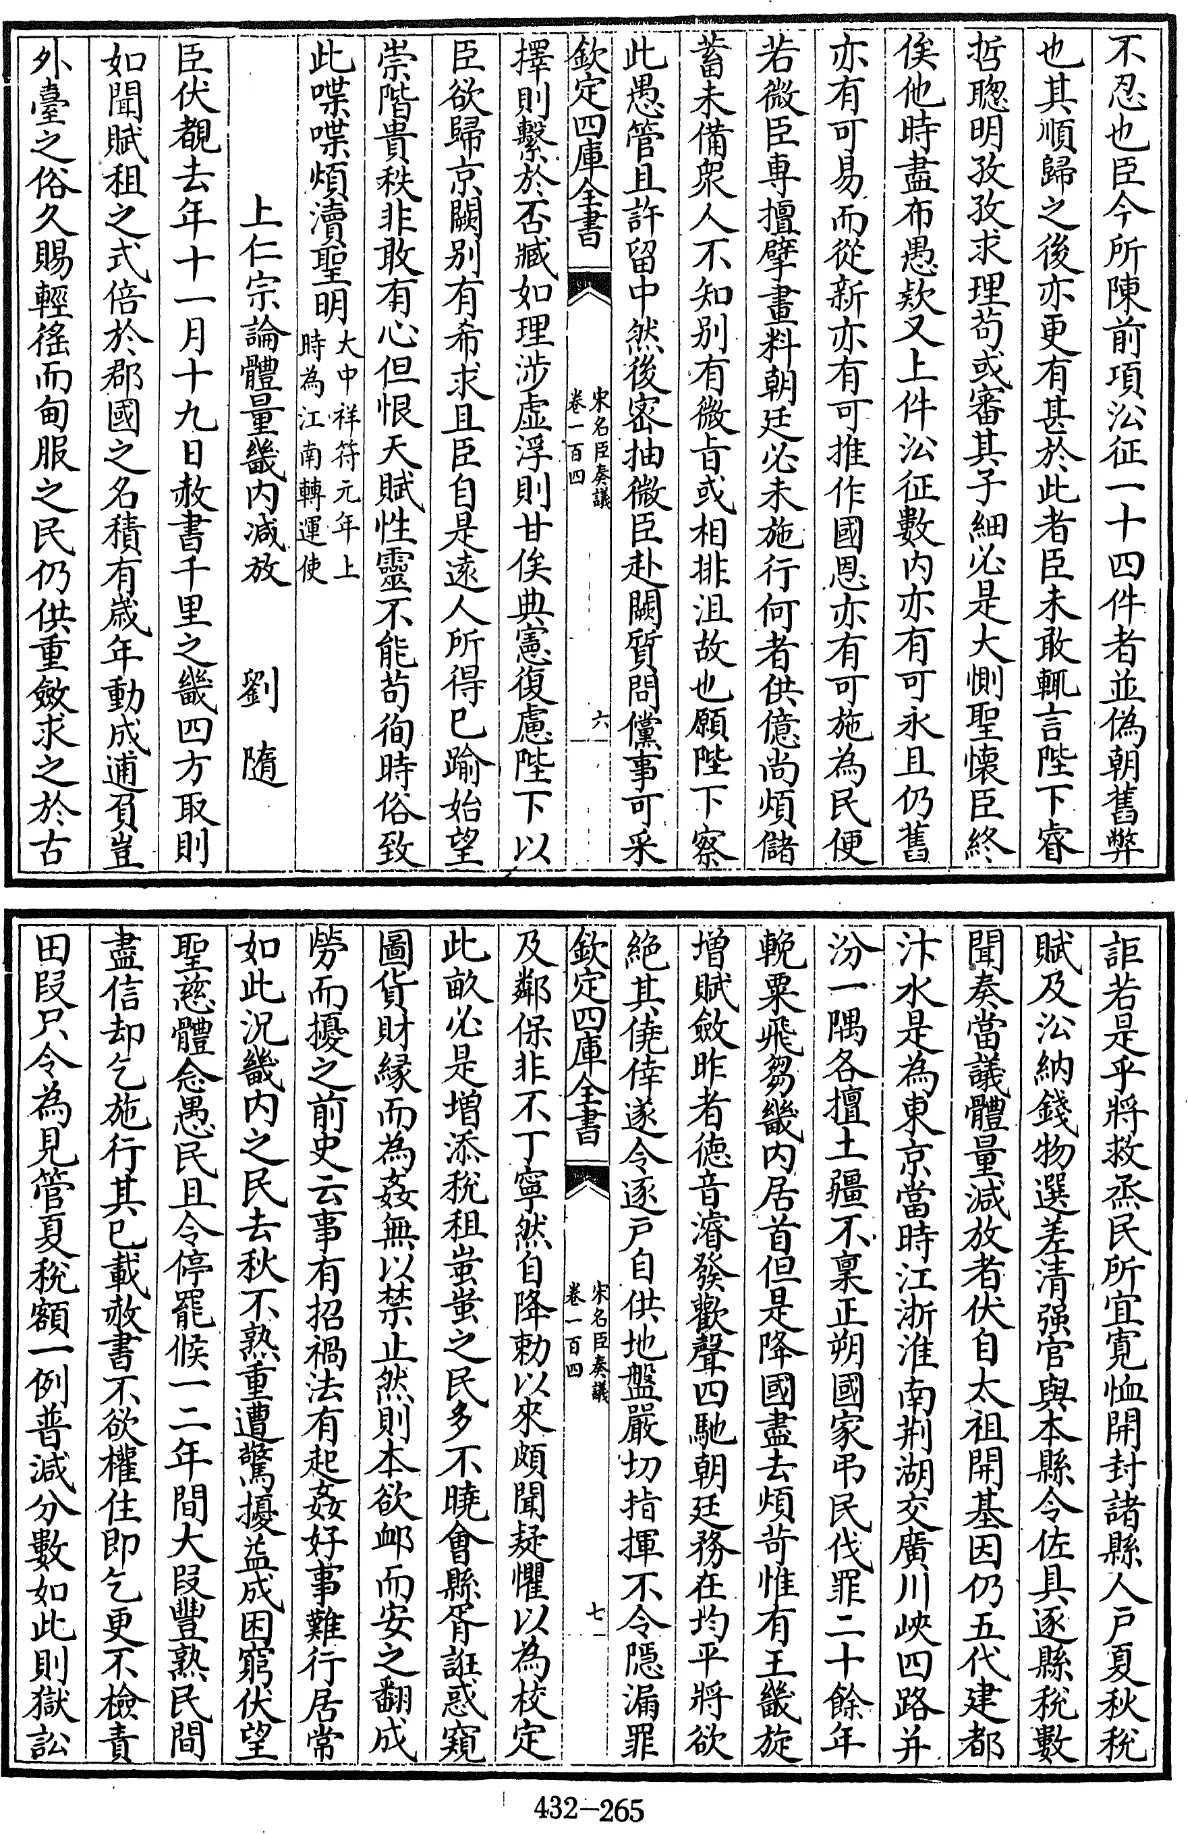 不忍也臣今所陳前項㳂征一十四件者並偽朝舊弊
也其順歸之後亦更有甚於此者臣未敢輒言陛下睿
哲聰明孜孜求理茍或審其子細必是大惻聖懷臣終
俟他時盡布愚欵又上件㳂征數内亦有可永且仍舊
亦有可易而從新亦有可推作國恩亦有可施為民便
若微臣專擅擘畫料朝廷必未施行何者供億尚煩儲
蓄未備衆人不知别有微旨或相排沮故也願陛下察
此愚管且許留中然後密抽微臣赴闕質問儻事可采
欽定四庫全書
宋名臣奏議
卷一百四
六
擇則繫於否臧如理涉虛浮則甘俟典憲復慮陛下以
臣欲歸京闕别有希求且臣自是遠人所得已踰始望
崇階貴秩非敢有心但恨天賦性靈不能茍徇時俗致
此喋喋煩瀆聖明大中祥符元年上
時為江南轉運使
上仁宗論體量畿内減放 劉隨
臣伏覩去年十一月十九日赦書千里之畿四方取則
如聞賦租之式倍於郡國之名積有歲年動成逋負豈
外臺之俗久賜輕徭而甸服之民仍供重斂求之於古
詎若是乎將救烝民所宜寛恤開封諸縣人户夏秋稅
賦及㳂納錢物選差清强官與本縣令佐具逐縣稅數
聞奏當議體量減放者伏自太祖開基因仍五代建都
汴水是為東京當時江浙淮南荆湖交廣川峽四路并
汾一隅各擅土疆不禀正朔國家弔民伐罪二十餘年
輓粟飛芻畿内居首但是降國盡去煩苛惟有王畿旋
增賦斂昨者德音濬發歡聲四馳朝廷務在均平將欲
絶其僥倖遂令逐戶自供地盤嚴切指揮不令隠漏罪
欽定四庫全書
宋名臣奏議
卷一百四
七
及鄰保非不丁寧然自降勅以來頗聞疑懼以為校定
此畝必是增添稅租蚩蚩之民多不曉會縣胥誑惑窺
圖貨財縁而為姦無以禁止然則本欲䘏而安之翻成
勞而擾之前史云事有招禍法有起姦好事難行居常
如此况畿内之民去秋不熟重遭驚擾益成困窮伏望
聖慈體念愚民且令停罷候一二年間大段豐熟民間
盡信却乞施行其已載赦書不欲權住即乞更不檢責
田段只令為見管夏稅額一例普減分數如此則獄訟
432-265